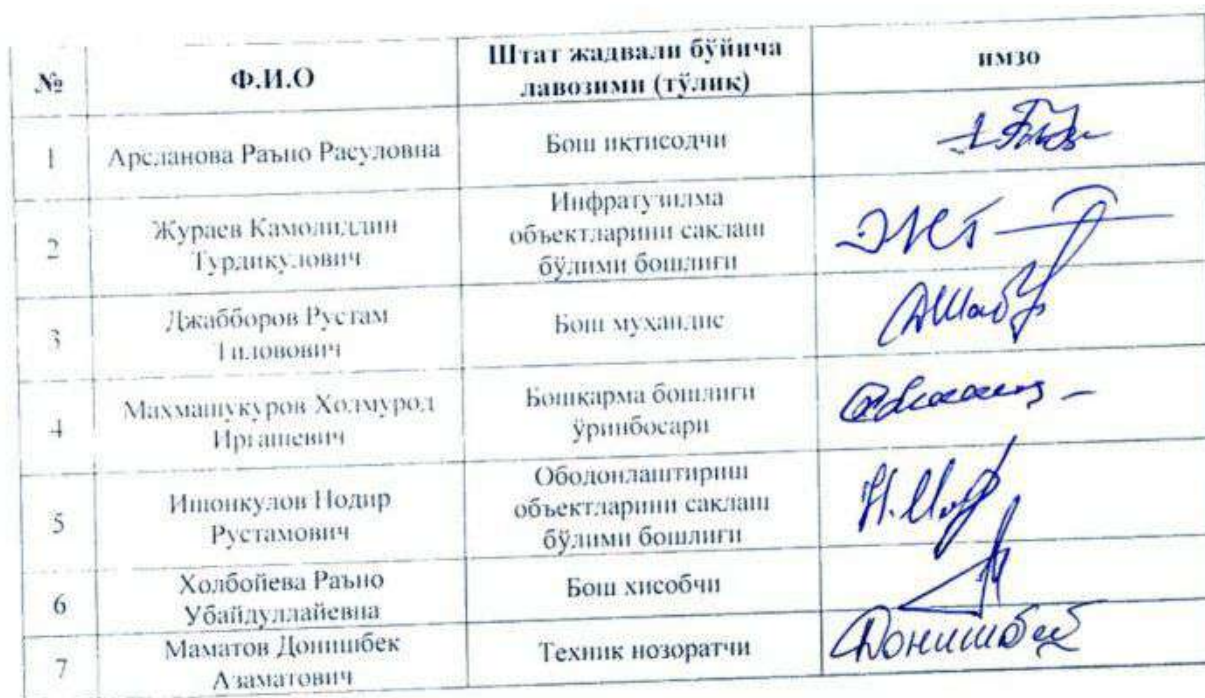 № Ф.И.О Штат жадвали бўйича лавозими (тўлиқ) имзо
1 Арсланова Раъно Расуловна Бош иқтисодчи
2 Жураев Камолиддин Турдикулович Инфратузилма объектларини сақлаш бўлими бошлиғи
3 Джабборов Рустам Гиловович Бош муҳандис
4 Махмашукуров Холмурод Иргашевич Бошқарма бошлиғи ўринбосари
5 Ишонкулов Нодир Рустамович Ободонлаштириш объектларини сақлаш бўлими бошлиғи
6 Холбойева Раъно Убайдуллайевна Бош хисобчи
7 Маматов Донишбек Азаматович Техник нозоратчи Донишбек